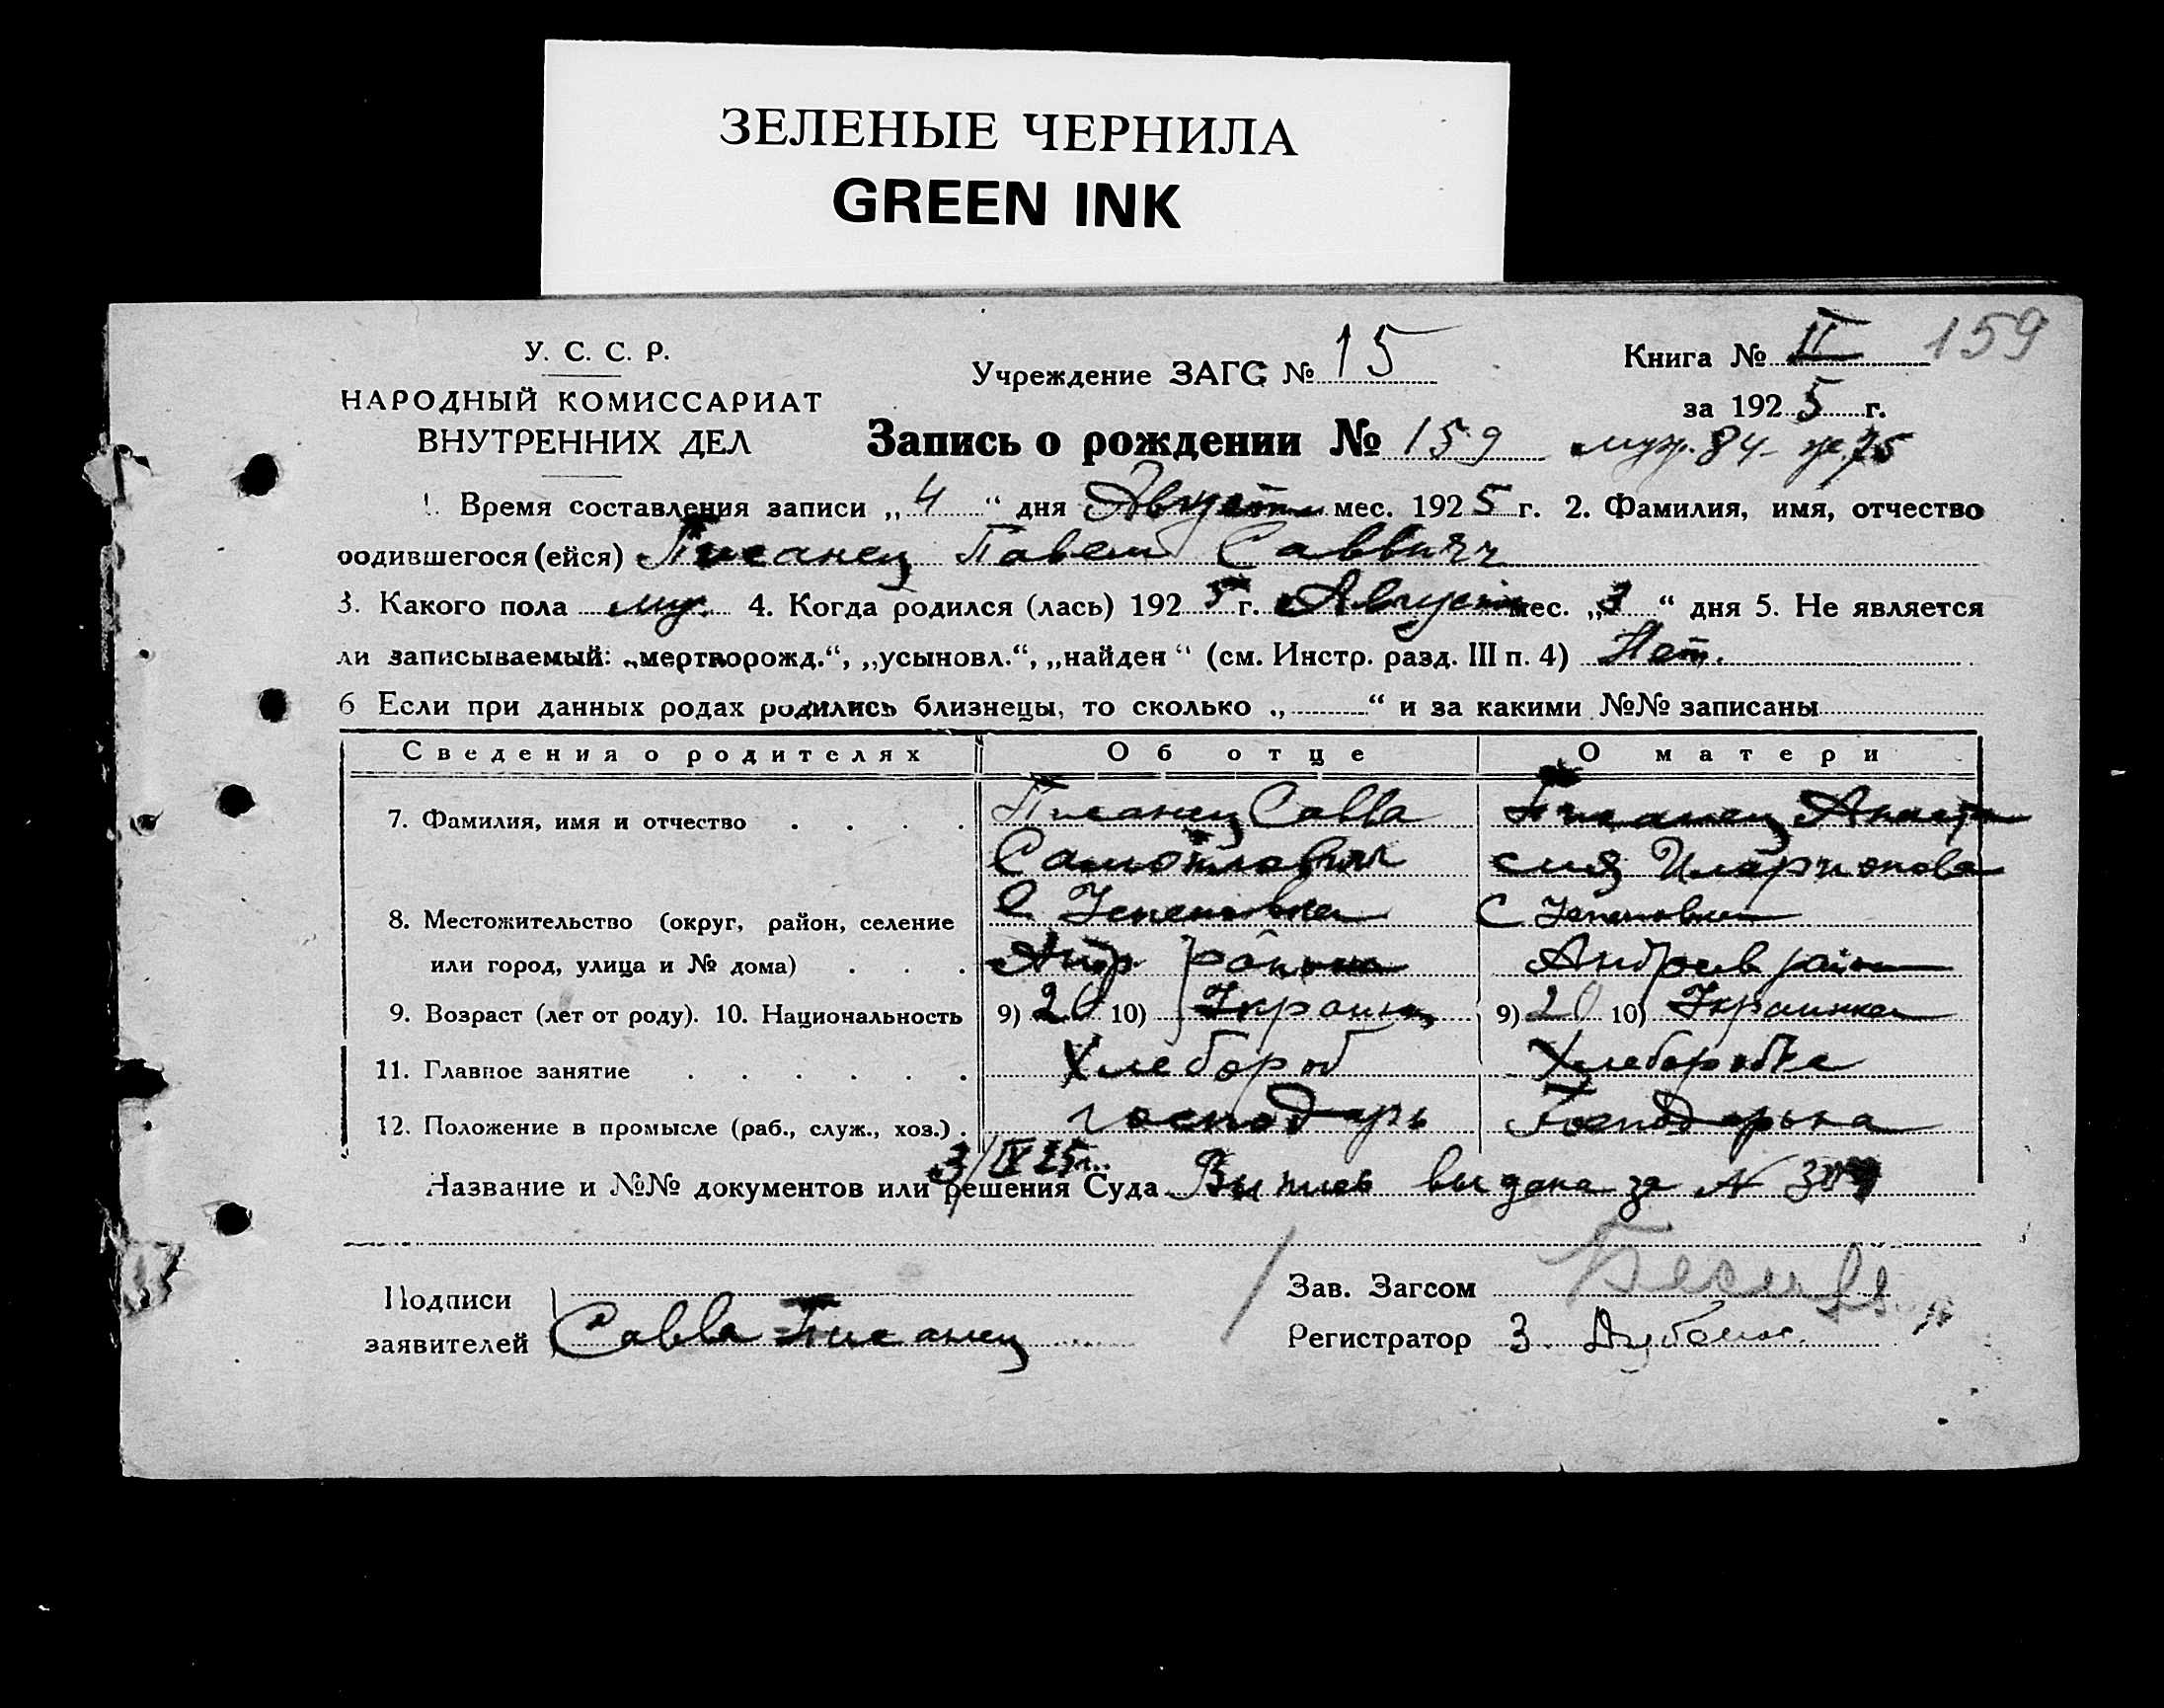 ЗЕЛЕНЫЕ ЧЕРНИЛА
GREEN INK
У. С. С. Р.
НАРОДНЫЙ КОМИССАРИАТ
ВНУТРЕННИХ ДЕЛ
Учреждение ЗАГС № 15
Книга № II 159
за 1925 г.
Запись о рождении № 159 муж. 84 - ж. 75
1. Время составления записи „4“ дня Август мес. 1925 г. 2. Фамилия, имя, отчество
родившегося (ейся) Писанец Павел Саввич
3. Какого пола муж. 4. Когда родился (лась) 1925 г. Август мес. „3“ дня 5. Не является
ли записываемый: „мертворожд.“, „усыновл.“, „найден“ (см. Инстр. разд. III п. 4) Нет.
6 Если при данных родах родились близнецы, то сколько „ “ и за какими №№ записаны
Сведения о родителях Об отце О матери
7. Фамилия, имя и отчество Писанец Савва Писанец Анаста
Самойлович сия Иларионова
8. Местожительство (округ, район, селение с. С
или город, улица и № дома) Андр района Андреев район
9. Возраст (лет от роду). 10. Национальность 9) 20 10) Украинец 9) 20 10) Украинка
11. Главное занятие Хлебороб Хлеборобка
12. Положение в промысле (раб., служ., хоз.) господарь Господарька
3/IX 25 г.
Название и №№ документов или решения Суда Выпись выдана за №
Подписи
заявителей Савва Писанец
Зав. Загсом
Регистратор З.